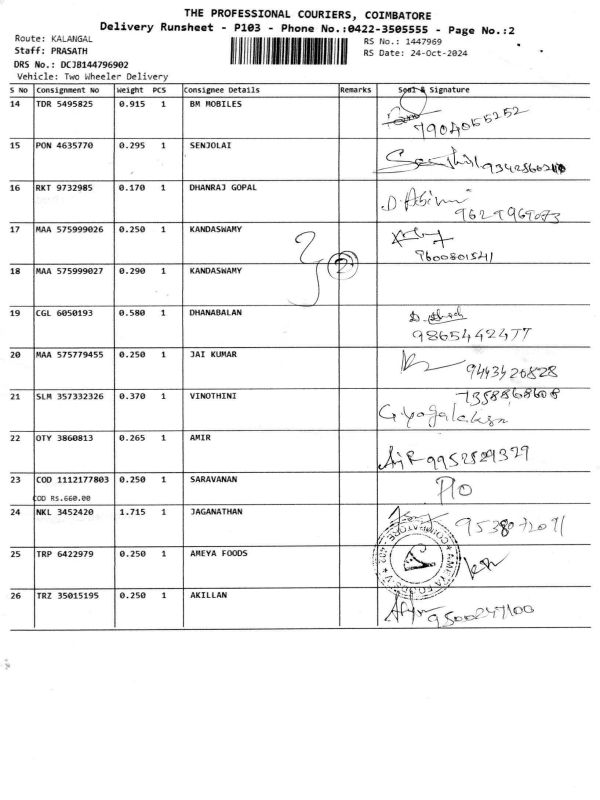 THE PROFESSIONAL COURIERS, COIMBATORE
Delivery Runsheet - P103 - Phone No.:0422-3505555 - Page No.:2
Route: KALANGAL RS No.: 1447969
Staff: PRASATH RS Date: 24-Oct-2024
DRS No.: DCJB144796902
Vehicle: Two Wheeler Delivery
S No Consignment No Weight PCS Consignee Details Remarks Seal & Signature
14 TDR 5495825 0.915 1 BM MOBILES
7904055252
15 PON 4635770 0.295 1 SENJOLAI
16 RKT 9732985 0.170 1 DHANRAJ GOPAL
17 MAA 575999026 0.250 1 KANDASWAMY
9600801541
2
18 MAA 575999027 0.290 1 KANDASWAMY
19 CGL 6050193 0.580 1 DHANABALAN
9865442477
20 MAA 575779455 0.250 1 JAI KUMAR
9443426828
21 SLM 357332326 0.370 1 VINOTHINI
7358868608
22 OTY 3860813 0.265 1 AMIR
9952829329
23 COD 1112177803 0.250 1 SARAVANAN
COD Rs.660.00
24 NKL 3452420 1.715 1 JAGANATHAN
9538072091
25 TRP 6422979 0.250 1 AMEYA FOODS
26 TRZ 35015195 0.250 1 AKILLAN
9500247100